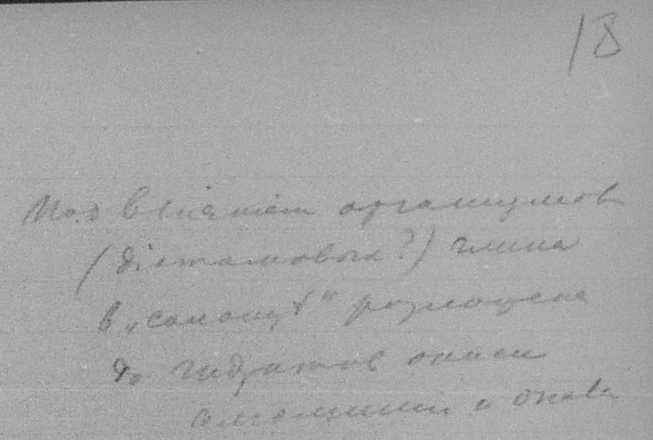 18
Под вліяніем организмов
(діатомовых?) глина
в „ разложена
до гидратов окиси
алюминия и